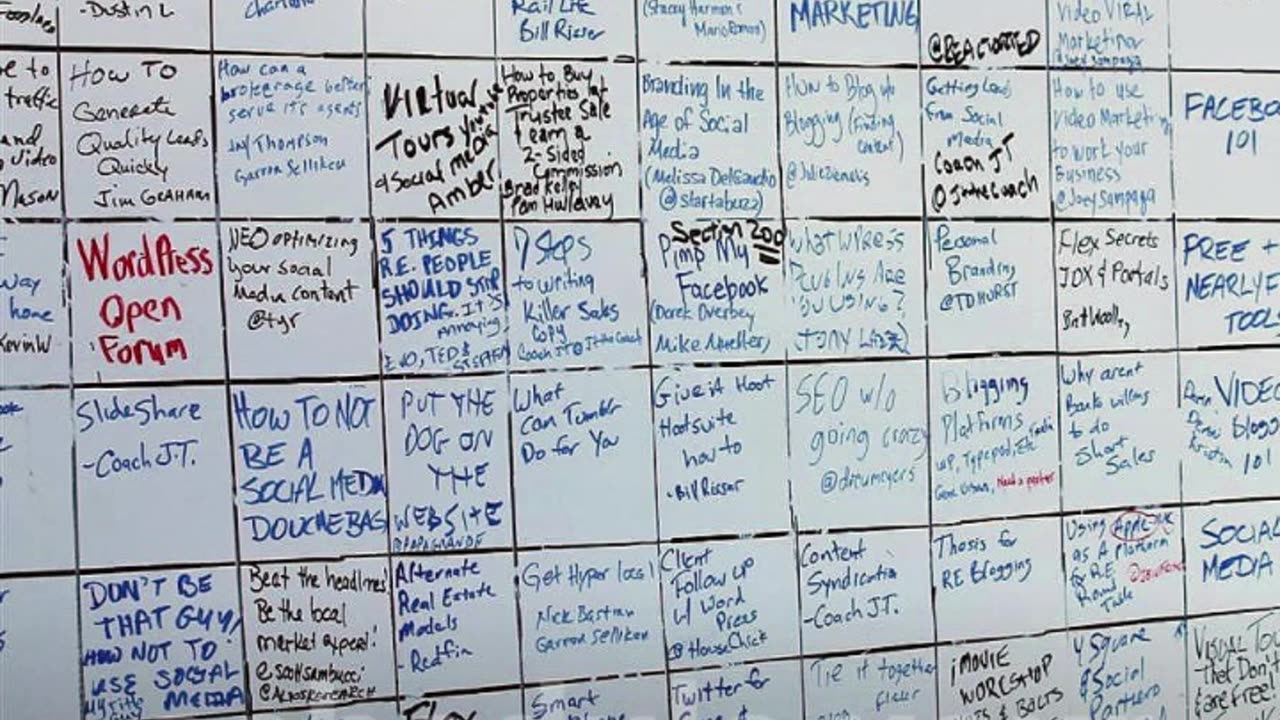 -Dustin L
Rail Life
Bill Risser
(Stacey Harmon &
MARKETING
@REACTORTED
Video VIRAL
Marketing
@Joey Sampaga
e to
traffic
and
Video
Mason
How To
Generate
Quality Leads
Quickly
Jim Graham
How can a
brokerage better
serve it's agents
Jay Thompson
Garron Sellken
Virtual
Tours
& Social media
Amber
How to Buy
Properties at
Trustee Sale
Learn a
2-Sided
Commission
Brad Kelly
Pam
Branding In the
Age of Social
Media
(Melissa DelGaudio
@startabuzz)
How to Blog w/o
Blogging (Finding
content)
Getting Leads
From Social
Media
Coach JT
@JtheCoach
How to use
Video Marketing
to work your
Business
@JoeySampaga
FACEBO
101
way
home
KevinW
WordPress
Open
Forum
NEO optimizing
your Social
Media Content
@tyr
5 THINGS
R.E. PEOPLE
SHOULD STOP
DOING. IT'S
Annoying!
7 Steps
to writing
Killer Sales
Copy
Coach JT @JtheCoach
Section 200
Pimp My
Facebook
(Derek Overbey
Mike Mueller)
What WPRESS
Plugins Are
You Using?
Personal
Branding
@TDHURST
Flex Secrets
IDX & Portals
FREE +
NEARLY F
TOOL
SlideShare
-Coach J.T.
HOW TO NOT
BE A
SOCIAL MEDIA
DOUCHEBAG
PUT THE
DOG ON
THE
WEBSITE
What
can Tumblr
Do for You
Give it Hoot
Hootsuite
how to
-Bill Risser
SEO w/o
going crazy
@drewmeyers
Blogging
Platforms
WP, Typepad, Etc
Need a partner
Why arent
Banks willing
to do
Short
Sales
VIDEO
Blogg
101
DON'T BE
THAT GUY,
HOW NOT TO
USE SOCIAL
MEDIA
Beat the headlines!
Be the local
market expert!
@scottsambucci
Alternate
Real Estate
Models
-Redfin
Get Hyper local
Nick Bastian
Garron Sellken
Client
Follow up
w/ Word
Press
@HouseChick
Content
Syndication
-Coach J.T.
Thesis for
RE Blogging
Using Apple
as A Platform
for R.E
Round
Table
SOCIAL
MEDIA
Smart
Twitter for
Tie it together
iMOVIE
WORKSHOP
NUTS & BOLTS
4 Square
& Social
VISUAL TOU
-that Don't
& are Free!